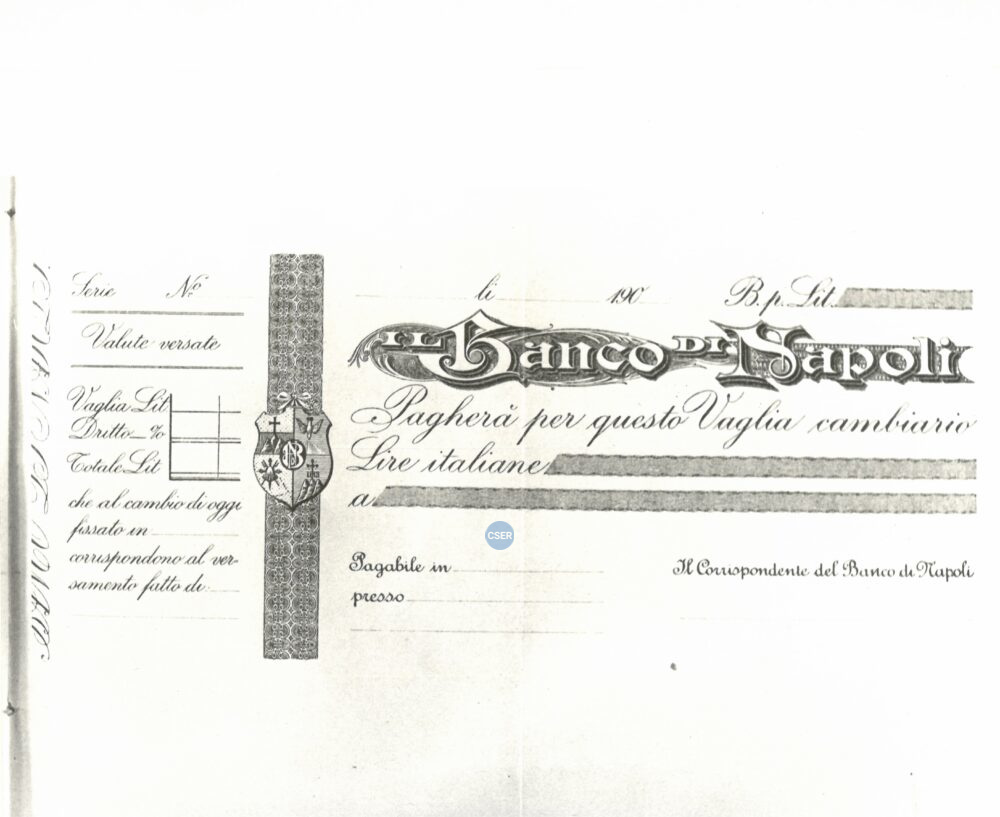 Serie Nº
Valute versate
Vaglia Lit
Dritto % 
Totale Lit
che al cambio di oggi
fissato in
corrispondono al ver-
samento fatto di
li 190 B. p. Lit.
IL Banco DI Napoli
Pagherà per questo Vaglia cambiario
Lire italiane
a
CSER
Pagabile in
presso
Il Corrispondente del Banco di Napoli